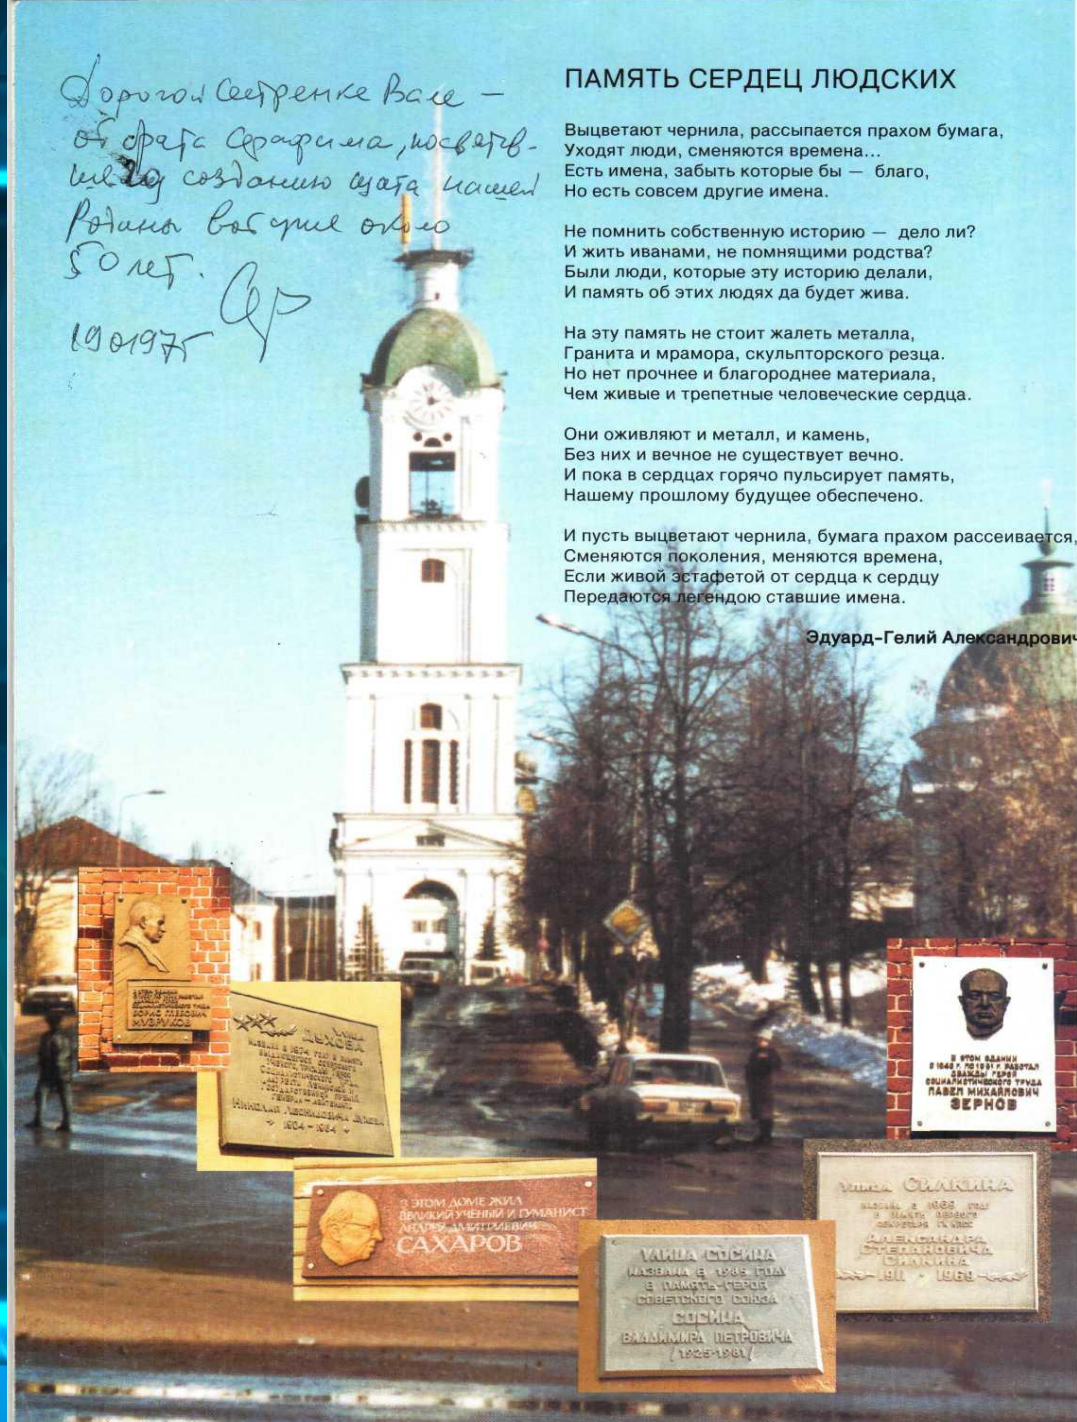 Дорогой сестренке Вале —
от брата Серафима, посвятив-
шему созданию щита нашей
Родины вот уже около
50 лет.
ПАМЯТЬ СЕРДЕЦ ЛЮДСКИХ
Выцветают чернила, рассыпается прахом бумага,
Уходят люди, сменяются времена...
Есть имена, забыть которые бы — благо,
Но есть совсем другие имена.
Не помнить собственную историю — дело ли?
И жить иванами, не помнящими родства?
Были люди, которые эту историю делали,
И память об этих людях да будет жива.
На эту память не стоит жалеть металла,
Гранита и мрамора, скульпторского резца.
Но нет прочнее и благороднее материала,
Чем живые и трепетные человеческие сердца.
Они оживляют и металл, и камень,
Без них и вечное не существует вечно.
И пока в сердцах горячо пульсирует память,
Нашему прошлому будущее обеспечено.
И пусть выцветают чернила, бумага прахом рассеивается,
Сменяются поколения, меняются времена,
Если живой эстафетой от сердца к сердцу
Передаются легендою ставшие имена.
Эдуард-Гелий Александрович
БОРИС ГЛЕБОВИЧ
МУЗРУКОВ
УЛИЦА
ДУХОВА
НАЗВАНА В 1974 ГОДУ В ПАМЯТЬ
ВЫДАЮЩЕГОСЯ СОВЕТСКОГО
УЧЕНОГО, ТРИЖДЫ ГЕРОЯ
СОЦИАЛИСТИЧЕСКОГО ТРУДА,
ЛАУРЕАТА ЛЕНИНСКОЙ И
ГОСУДАРСТВЕННОЙ ПРЕМИЙ
ГЕНЕРАЛ-ЛЕЙТЕНАНТА
НИКОЛАЯ ЛЕОНИДОВИЧА ДУХОВА
1904 - 1964
В ЭТОМ ДОМЕ ЖИЛ
ВЕЛИКИЙ УЧЕНЫЙ И ГУМАНИСТ
АНДРЕЙ ДМИТРИЕВИЧ
САХАРОВ
УЛИЦА СОСИНА
НАЗВАНА В 1985 ГОДУ
В ПАМЯТЬ ГЕРОЯ
СОВЕТСКОГО СОЮЗА
СОСИНА
ВЛАДИМИРА ПЕТРОВИЧА
(1925-1981)
УЛИЦА СИЛКИНА
НАЗВАНА В 1969 ГОДУ
В ПАМЯТЬ ПЕРВОГО
СЕКРЕТАРЯ ГК КПСС
АЛЕКСАНДРА
СТЕПАНОВИЧА
СИЛКИНА
1911 - 1969
В ЭТОМ ЗДАНИИ
РАБОТАЛ
ДВАЖДЫ ГЕРОЙ
СОЦИАЛИСТИЧЕСКОГО ТРУДА
ПАВЕЛ МИХАЙЛОВИЧ
ЗЕРНОВ